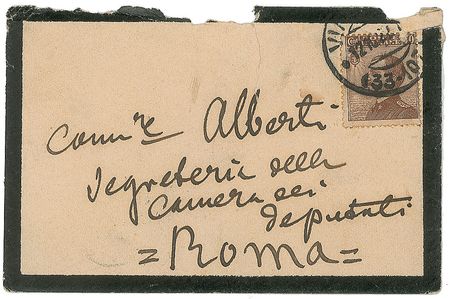 Comm.re Alberti
Segreteria della
Camera dei
deputati
=Roma=